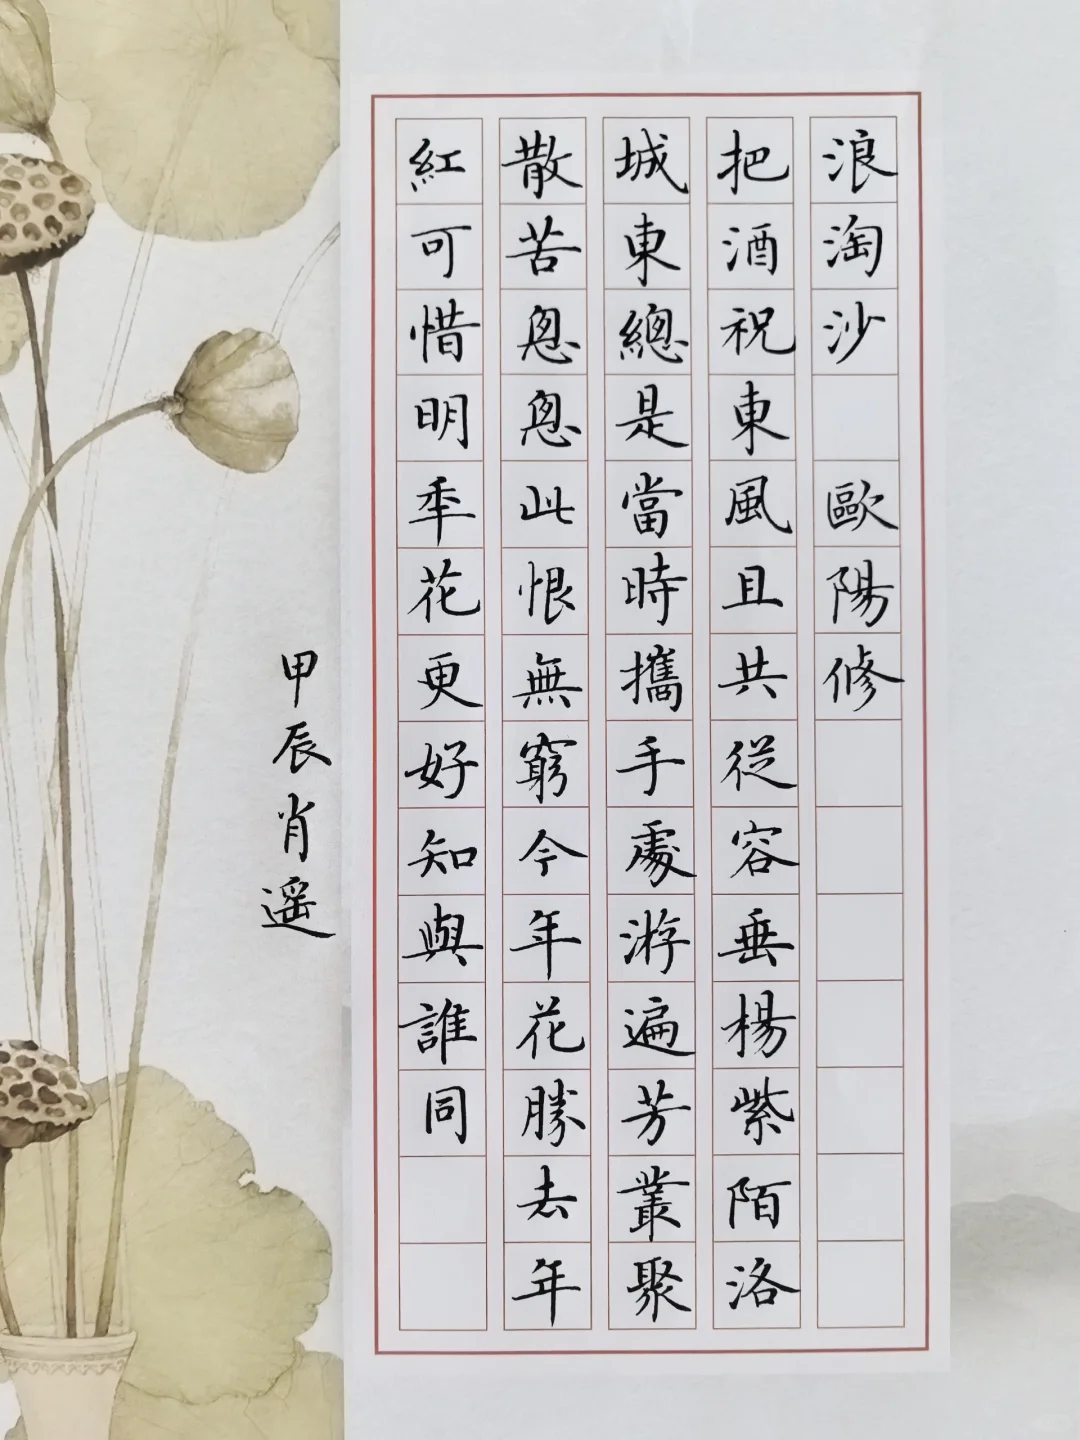 浪淘沙 歐陽修
把酒祝東風且共從容垂楊紫陌洛
城東總是當時攜手處游遍芳叢聚
散苦怱怱此恨無窮今年花勝去年
紅可惜明年花更好知與誰同
甲辰肖遥